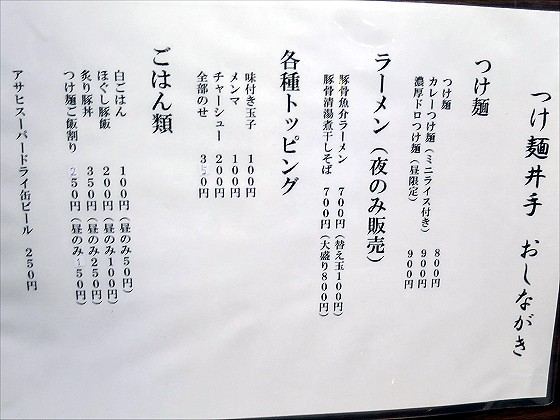 つけ麺井手 おしながき
つけ麺
つけ麺 800円
カレーつけ麺(ミニライス付き) 900円
濃厚ドロつけ麺(昼限定) 900円
ラーメン(夜のみ販売)
豚骨魚介ラーメン 700円(替え玉100円)
豚骨清湯煮干しそば 700円(大盛り800円)
各種トッピング
味付き玉子 100円
メンマ 100円
チャーシュー 200円
全部のせ 350円
ごはん類
白ごはん 100円(昼のみ50円)
ほぐし豚飯 200円(昼のみ100円)
炙り豚丼 350円(昼のみ250円)
つけ麺ご飯割り 250円(昼のみ150円)
アサヒスーパードライ缶ビール 250円